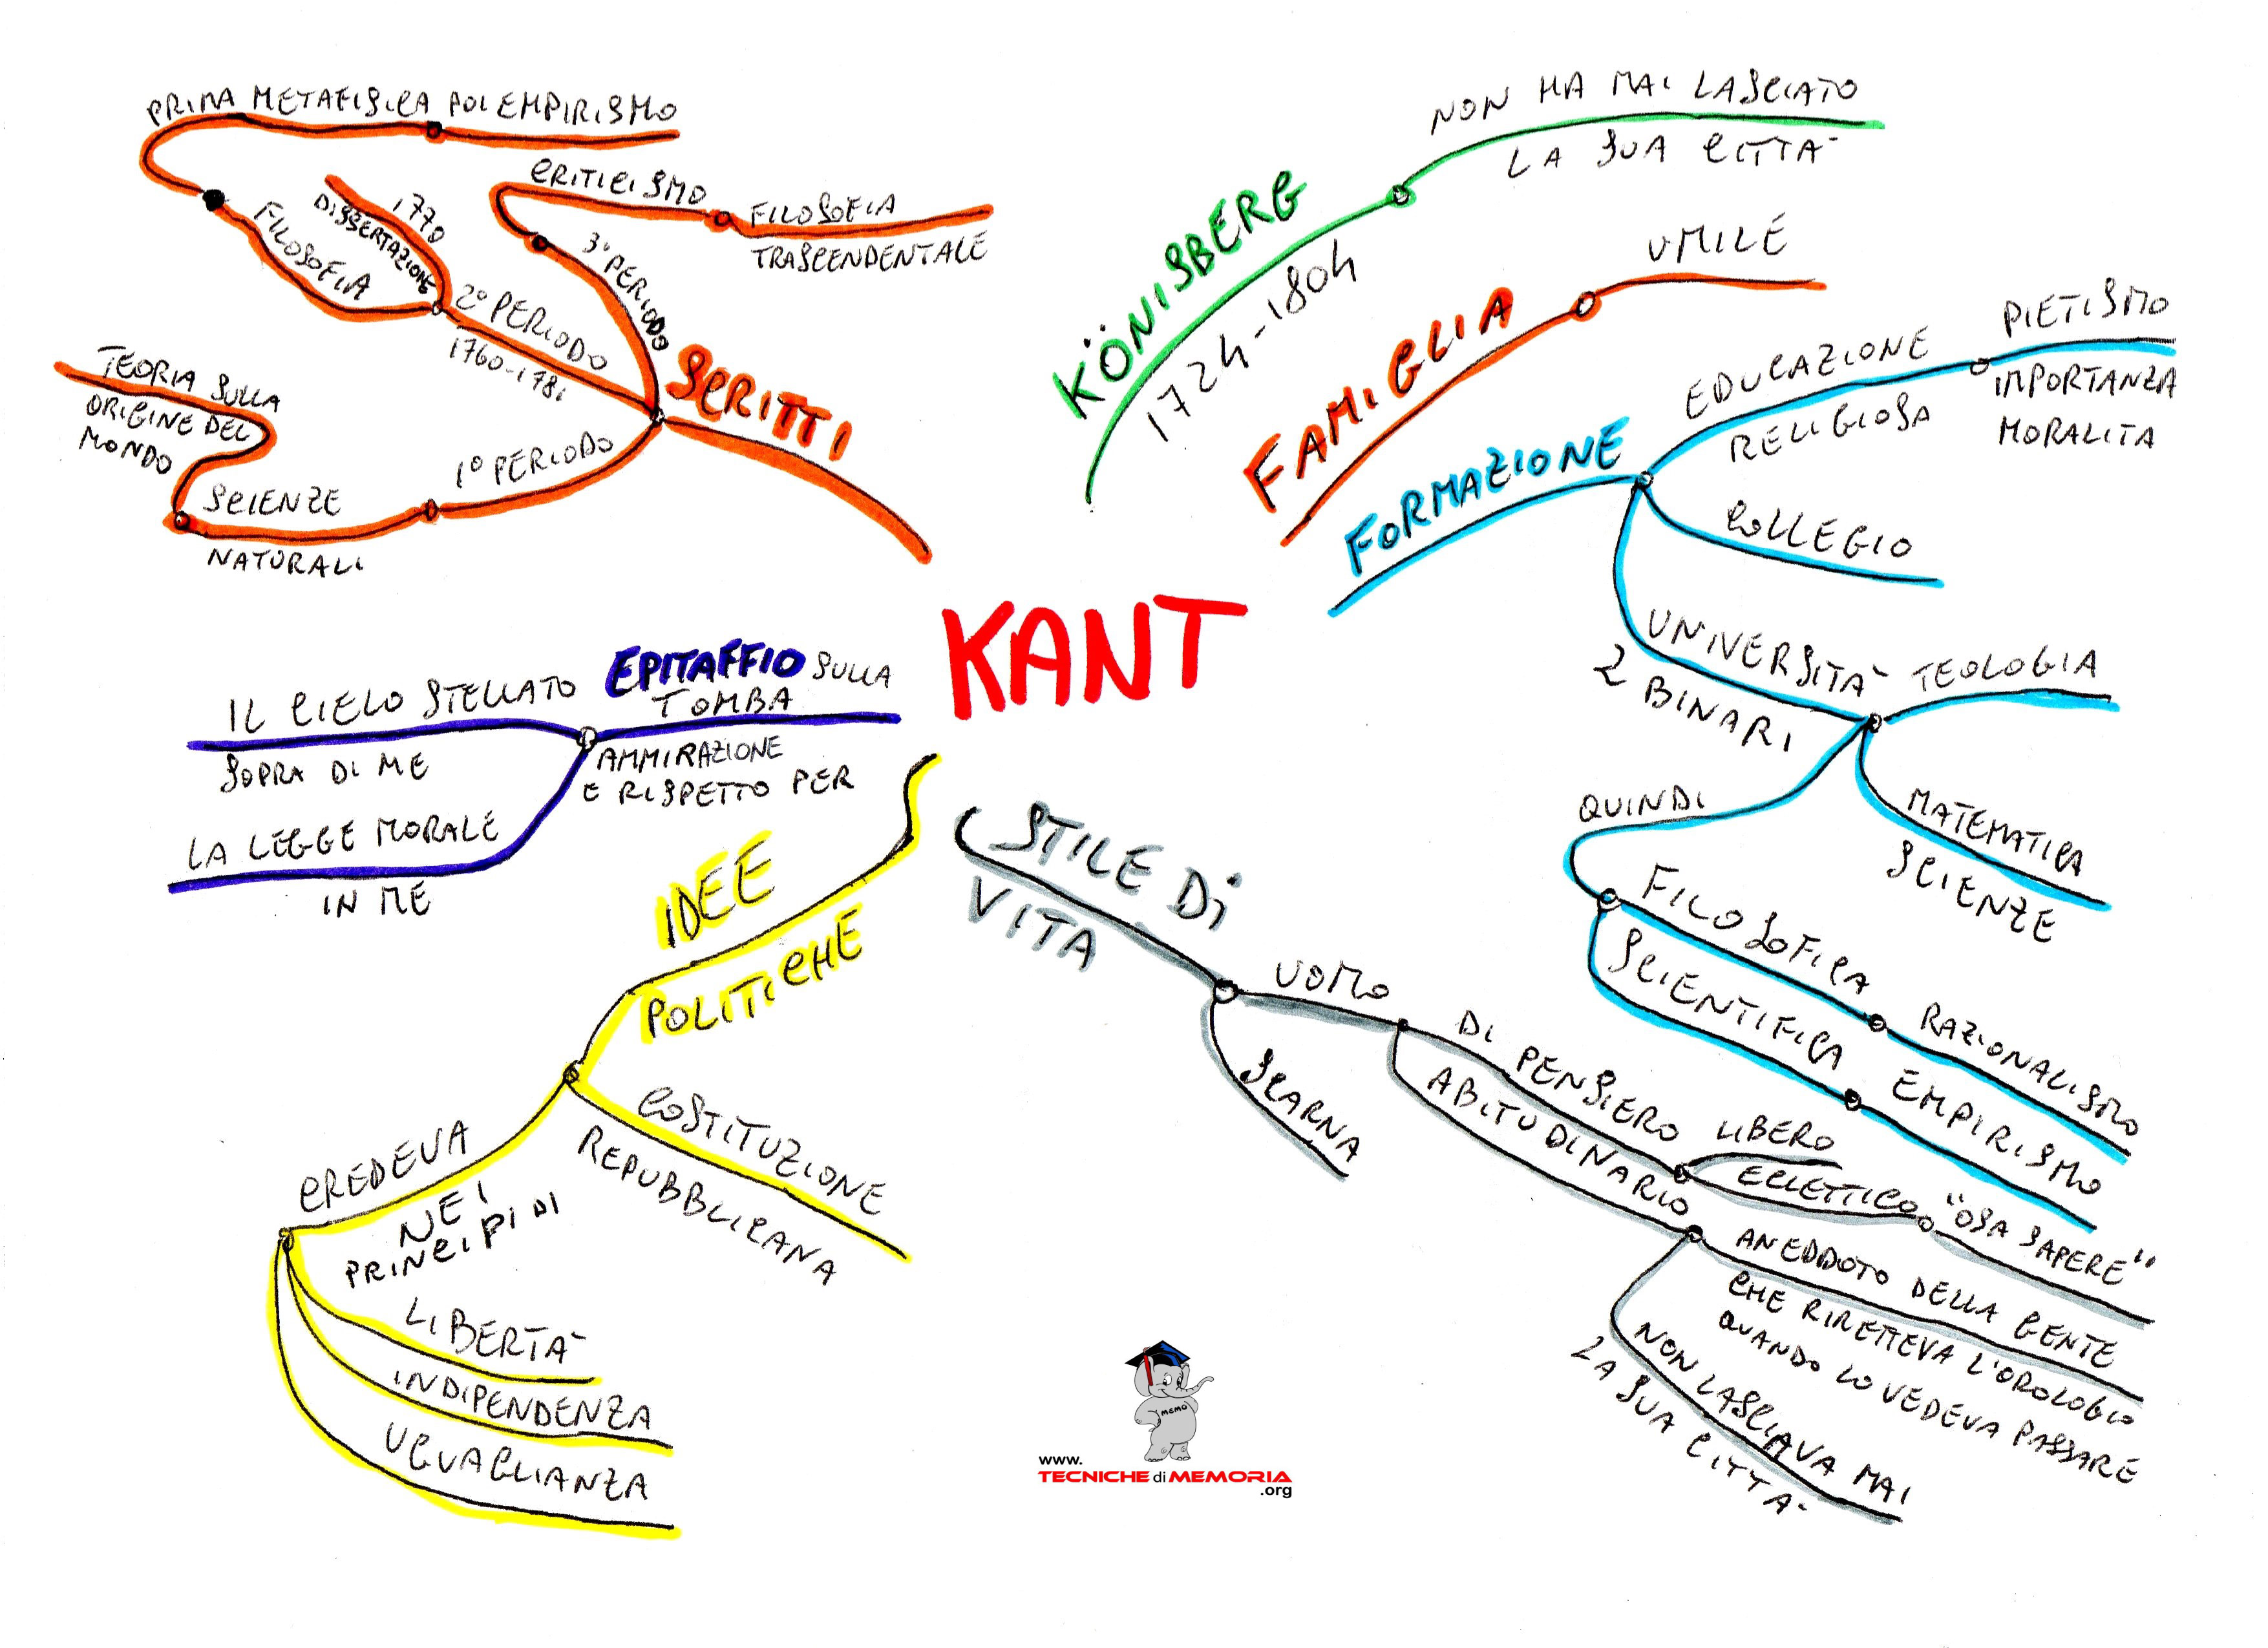 KANT
KÖNISBERG
1724-1804
NON HA MAI LASCIATO
LA SUA CITTA'
FAMIGLIA
UMILE
FORMAZIONE
EDUCAZIONE
RELIGIOSA
PIETISMO
IMPORTANZA
MORALITA
COLLEGIO
UNIVERSITA'
2 BINARI
TEOLOGIA
MATEMATICA
SCIENZE
QUINDI
FILOSOFICA
RAZIONALISMO
SCIENTIFICA
EMPIRISMO
STILE DI
VITA
UOMO
DI PENSIERO
LIBERO
ECLETTICO
"OSA SAPERE"
ABITUDINARIO
ANEDDOTO DELLA GENTE
CHE RIMETTEVA L'OROLOGIO
QUANDO LO VEDEVA PASSARE
NON LASCIAVA MAI
LA SUA CITTA'
SCARNA
IDEE
POLITICHE
COSTITUZIONE
REPUBBLICANA
CREDEVA
NEI
PRINCIPI DI
LIBERTA'
INDIPENDENZA
UGUAGLIANZA
EPITAFFIO SULLA
TOMBA
AMMIRAZIONE
E RISPETTO PER
IL CIELO STELLATO
SOPRA DI ME
LA LEGGE MORALE
IN ME
SCRITTI
1° PERIODO
SCIENZE
NATURALI
TEORIA SULLA
ORIGINE DEL
MONDO
2° PERIODO
1760-1781
1770
DISSERTAZIONE
FILOSOFIA
PRIMA METAFISICA POI EMPIRISMO
3° PERIODO
CRITICISMO
FILOSOFIA
TRASCENDENTALE
MEMO
www.
TECNICHE di MEMORIA
.org